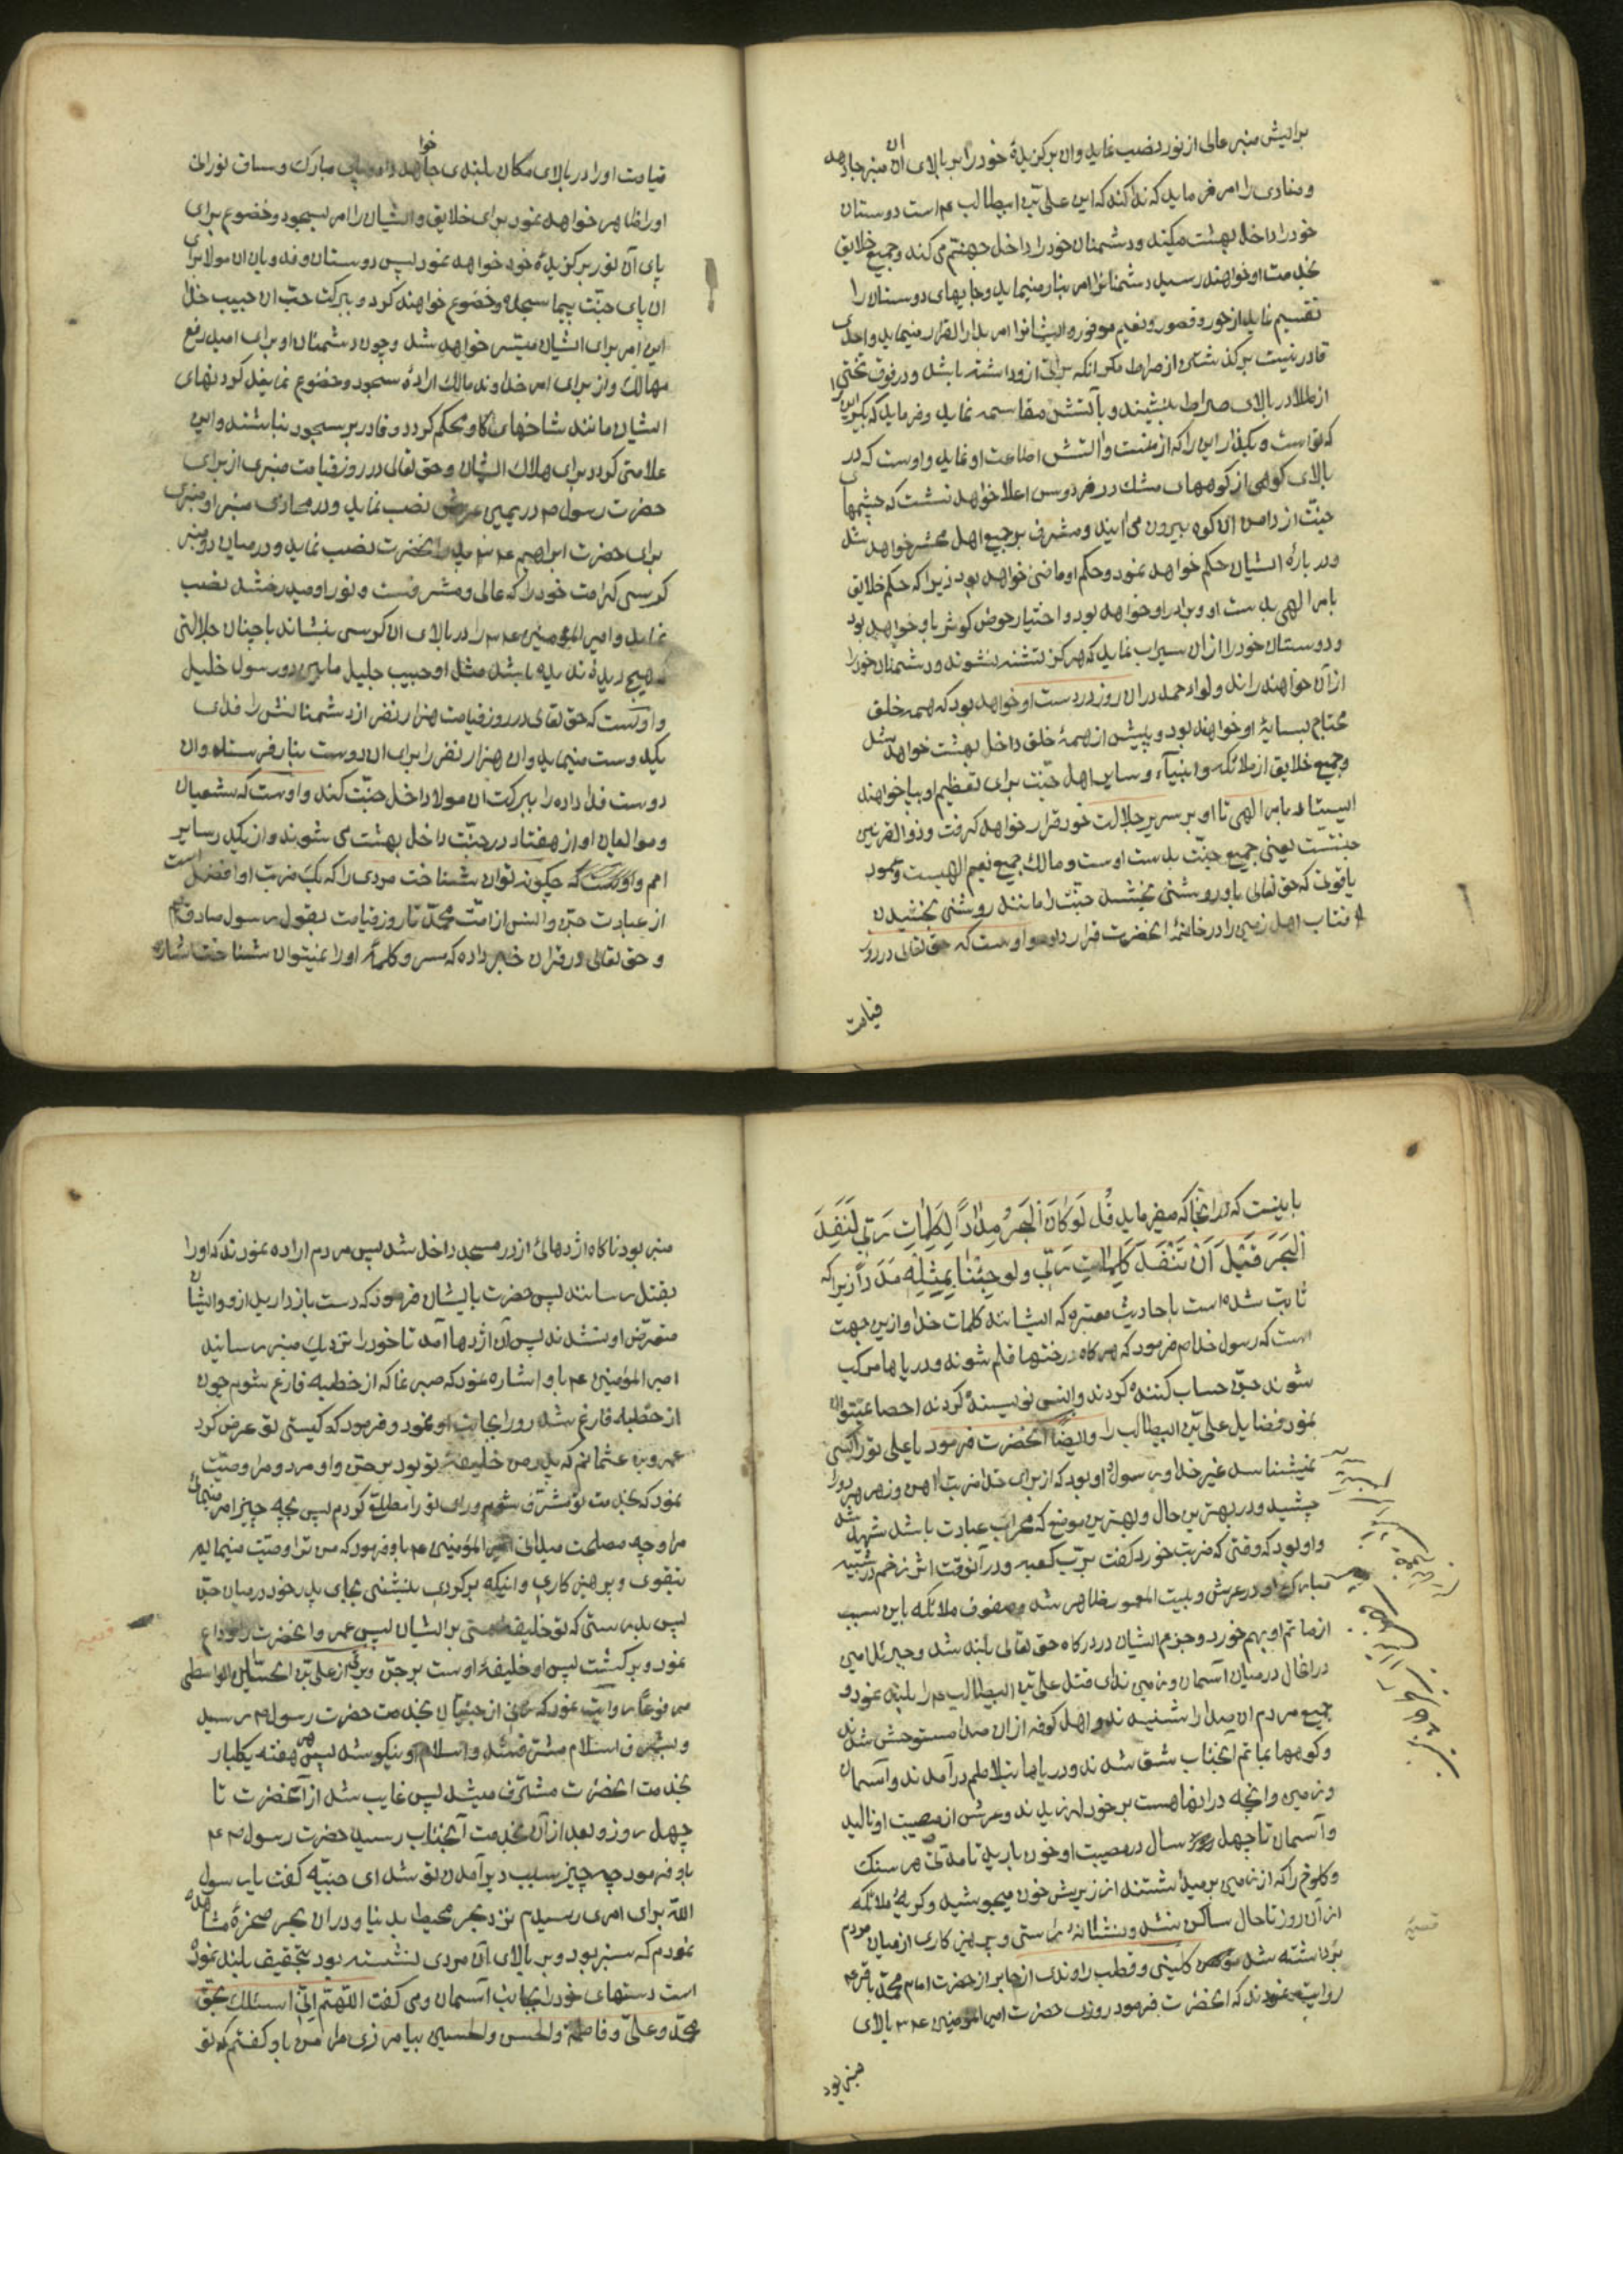 برایش منبر عالی از نور نصب نماید و ان برکزیدهٔ خود را بر بالای ان منبر جا دهد
و منادی را امر فرماید که ندا کند که این علی بن ابیطالب ع است دوستان
خود را داخل بهشت میکند و دشمنان خود را داخل جهنّم می کند و جمیع خلایق
بخدمت او خواهند رسید دشمنان را امر بنار مینماید و جایهای دوستان را
تقسیم نماید از حور و قصور و نعیم موفور و ایشانرا امر بدار القرار مینماید و احدی
قادر نیست بر کذشتن از صراط مکر انکه براتی ازو داشته باشد و در فوق تختی
از طلا در بالای صراط بنشیند و با آتش مقاسمه نماید و فرماید که بکیر این را
که از تو است و بکذار این را که از منست و آتش اطاعت او نماید و اوست که در
بالای کوهی از کوههای مشک در فردوس اعلا خواهد نشست که چشمهای
جنّت از دامن ان کوه بیرون می ایند و مشرف بر جمیع اهل محشر خواهد شد
و در بارهٔ ایشان حکم خواهد نمود و حکم او ماضی خواهد بود زیرا که حکم خلایق
بامر الهی بدست او و برادر او خواهد بود و اختیار حوض کوثر با و خواهد بود
و دوستان خود را ازان سیراب نماید که هرکز تشنه نشوند و دشمنان خود را
از آن خواهند راند و لواء حمد دران روز در دست او خواهد بود که همه خلق
محتاج بسایهٔ او خواهند بود و پیش از همهٔ خلق داخل بهشت خواهد شد
و جمیع خلایق از ملائکه و انبیآء و سایر اهل جنّت برای تعظیم او بپا خواهند
ایستاد بامر الهی تا او بر سریر جلالت خود قرار خواهد کرفت و ذو القرنین
جنّتست یعنی جمیع جنّت بدست اوست و مالک جمیع نعیم الهیست و عمود
یاقوتی که حق تعالی باو روشنی بخشد جنّت را مانند روشنی بخشیدن
افتاب اهل زمین را در خانهٔ انحضرت قرار داده و اوست که حق تعالی در روز
قیامت
قیامت او را در بالای مکان بلندی جا خواهد داد و پای مبارک و ساق نورانی
او را ظاهر خواهد نمود برای خلایق و ایشان را امر بسجود و خضوع برای
پای آن نور برکزیدهٔ خود خواهد نمود پس دوستان و فدویان ان مولا برای
ان پای جنّت پیما سجده و خضوع خواهند کرد و ببرکت حبّ ان حبیب خدا
این امر برای ایشان میسّر خواهد شد و چون دشمنان او برای امید رفع
مهالک و از برای امر خداوند مالک ارادهٔ سجود و خضوع نمایند کردنهای
ایشان مانند شاخهای کاو محکم کردد و قادر بر سجود نباشند و این
علامتی کردد برای هلاک ایشان و حق تعالی در روز قیامت منبری از برای
حضرت رسول ص در یمین عرش نصب نماید و در محاذی منبر او منبری
برای حضرت ابراهیم ع پدر انحضرت نصب نماید و در میان دو منبر
کرسی کرامت خود را که عالی و مشرفست و نور او میدرخشد نصب
نماید و امیر المؤمنین ع را در بالای ان کرسی بنشاند با چنان جلالتی
که هیچ دیدهٔ ندیده باشد مثل او حبیب جلیل مابین دو رسول خلیل
و اوست که حق تعالی در روز قیامت هزار نفر از دشمنانش را فدای
یک دوست مینماید و ان هزار نفر را برای ان دوست بنار فرستاده و ان
دوست فدا داده را ببرکت ان مولا داخل جنّت کند و اوست که شیعیان
و موالیان او از هفتاد در جنّت داخل بهشت می شوند و از یکدر سایر
امم و اوست که چکونه توان شناخت مردی را که یک ضربت او افضل است
از عبادت جنّ و انس از امّت محمّد تا روز قیامت بقول رسول صادق
و حق تعالی در قران خبر داده که سر و کلمهٔ او را نمیتوان شناخت اشاره
باینست که در انجا که میفرماید قُل لَو کانَ البَحرُ مِداداً لِکَلِماتِ رَبّی لَنَفِدَ
البَحرُ قَبلَ اَن تَنفَدَ کَلِماتُ رَبّی ولو جِئنا بِمِثلِه مَدَداً زیرا که
ثابت شده است باحادیث معتبره که ایشانند کلمات خدا و ازین جهت
است که رسول خدا ص فرمود که هر کاه درختها قلم شوند و دریاها مرکب
شوند جنّ حساب کننده کردند و انس نویسنده کردند احصا نمیتوان
نمود فضایل علی بن ابیطالب را و ایضاً انحضرت فرمود یا علی تو را کسی
نمیشناسد غیر خدا و رسول او بود که از برای خدا ضربت اهن و زهر هر دو را
چشید و در بهترین حال و بهترین موضع که محراب عبادت باشد شهید شد
و او بود که وقتی که ضربت خورد کفت بربّ کعبه و در آنوقت اثر زخم در شبیه
مبارک او در عرش و بیت المعمور ظاهر شد و صفوف ملائکه باین سبب
از ماتم او بهم خورد و جزم ایشان در درکاه حق تعالی بلند شد و جبرئیل امین
در انحال در میان آسمان و زمین ندای قتل علی بن ابیطالب ع را بلند نمود و
جمیع مردم ان صدا را شنیدند و اهل کوفه از ان صدا مستوحش شدند
و کوهها بماتم آنجناب شق شدند و دریاها بتلاطم درآمدند و آسمان
و زمین و انچه در انها هست بر خود لرزیدند و عرش از مصیبت او نالید
و آسمان تا چهل سال در مصیبت او خون بارید تا مدتی هر سنک
و کلوخ را که از زمین بر میداشتند از زیرش خون میجوشید و کریهٔ ملائکه
از آن روز تا حال ساکن نشد و نشانه راستی و پرهیزکاری از میان مردم
برداشته شد کلینی و قطب راوندی از جابر از حضرت امام محمّد باقر ع
روایت نمودند که انحضرت فرمود روزی حضرت امیر المؤمنین ع بالای
منبر بود
منبر بود ناکاه اژدهائی از در مسجد داخل شد پس مردم اراده نمودند که او را
بقتل رسانند پس حضرت بایشان فرمود که دست بازدارید ازو و ایشان
متعرّض او نشدند پس آن اژدها آمد تا خود را نزدیک منبر رسانید
امیر المؤمنین ع باو اشاره نمود که صبر نما که از خطبه فارغ شویم چون
از خطبه فارغ شد رو را بجانب او نمود و فرمود که کیستی تو عرض کرد
عمرو بن عثمانم که پدر من خلیفهٔ تو بود بر جنّ و او مرد و مرا وصیّت
نمود که بخدمت تو مشرّف شوم و رای تو را مطلع کردم پس بچه چیز امر مینمائی
مرا و چه مصلحت میدانی امیر المؤمنین ع باو فرمود که من ترا وصیّت مینمایم
بتقوی و پرهیزکاری و اینکه برکردی بنشینی بجای پدر خود در میان جنّ
پس بدرستی که تو خلیفه منی بر ایشان پس عمرو انحضرت را وداع
نمود و برکشت پس او خلیفهٔ اوست بر جنّ و از علی بن الحسین الواسطی
مرفوعاً روایت نمود که زنی از جنیّان بخدمت حضرت رسول ص رسید
و بشرف اسلام مشرّف شد و اسلام او نیکو شد پس هر هفته یکبار
بخدمت انحضرت مشرّف میشد پس غایب شد از آنحضرت تا
چهل روز و بعد از آن بخدمت آنجناب رسید حضرت رسول ص
باو فرمود چه چیز سبب دیر آمدن تو شد ای جنیّه کفت یا رسول
اللّه برای امری رسیدم نزد بحر محیط بدنیا و در ان بحر صخرهٔ مشاهده
نمودم که سبز بود و بر بالای آن مردی نشسته بود بتحقیق بلند نموده
است دستهای خود را بجانب آسمان و می کفت اللّهمّ انّی اسئلک بحقّ
محمّد و علیّ و فاطمة والحسن والحسین بیامرزی مرا من باو کفتم که تو